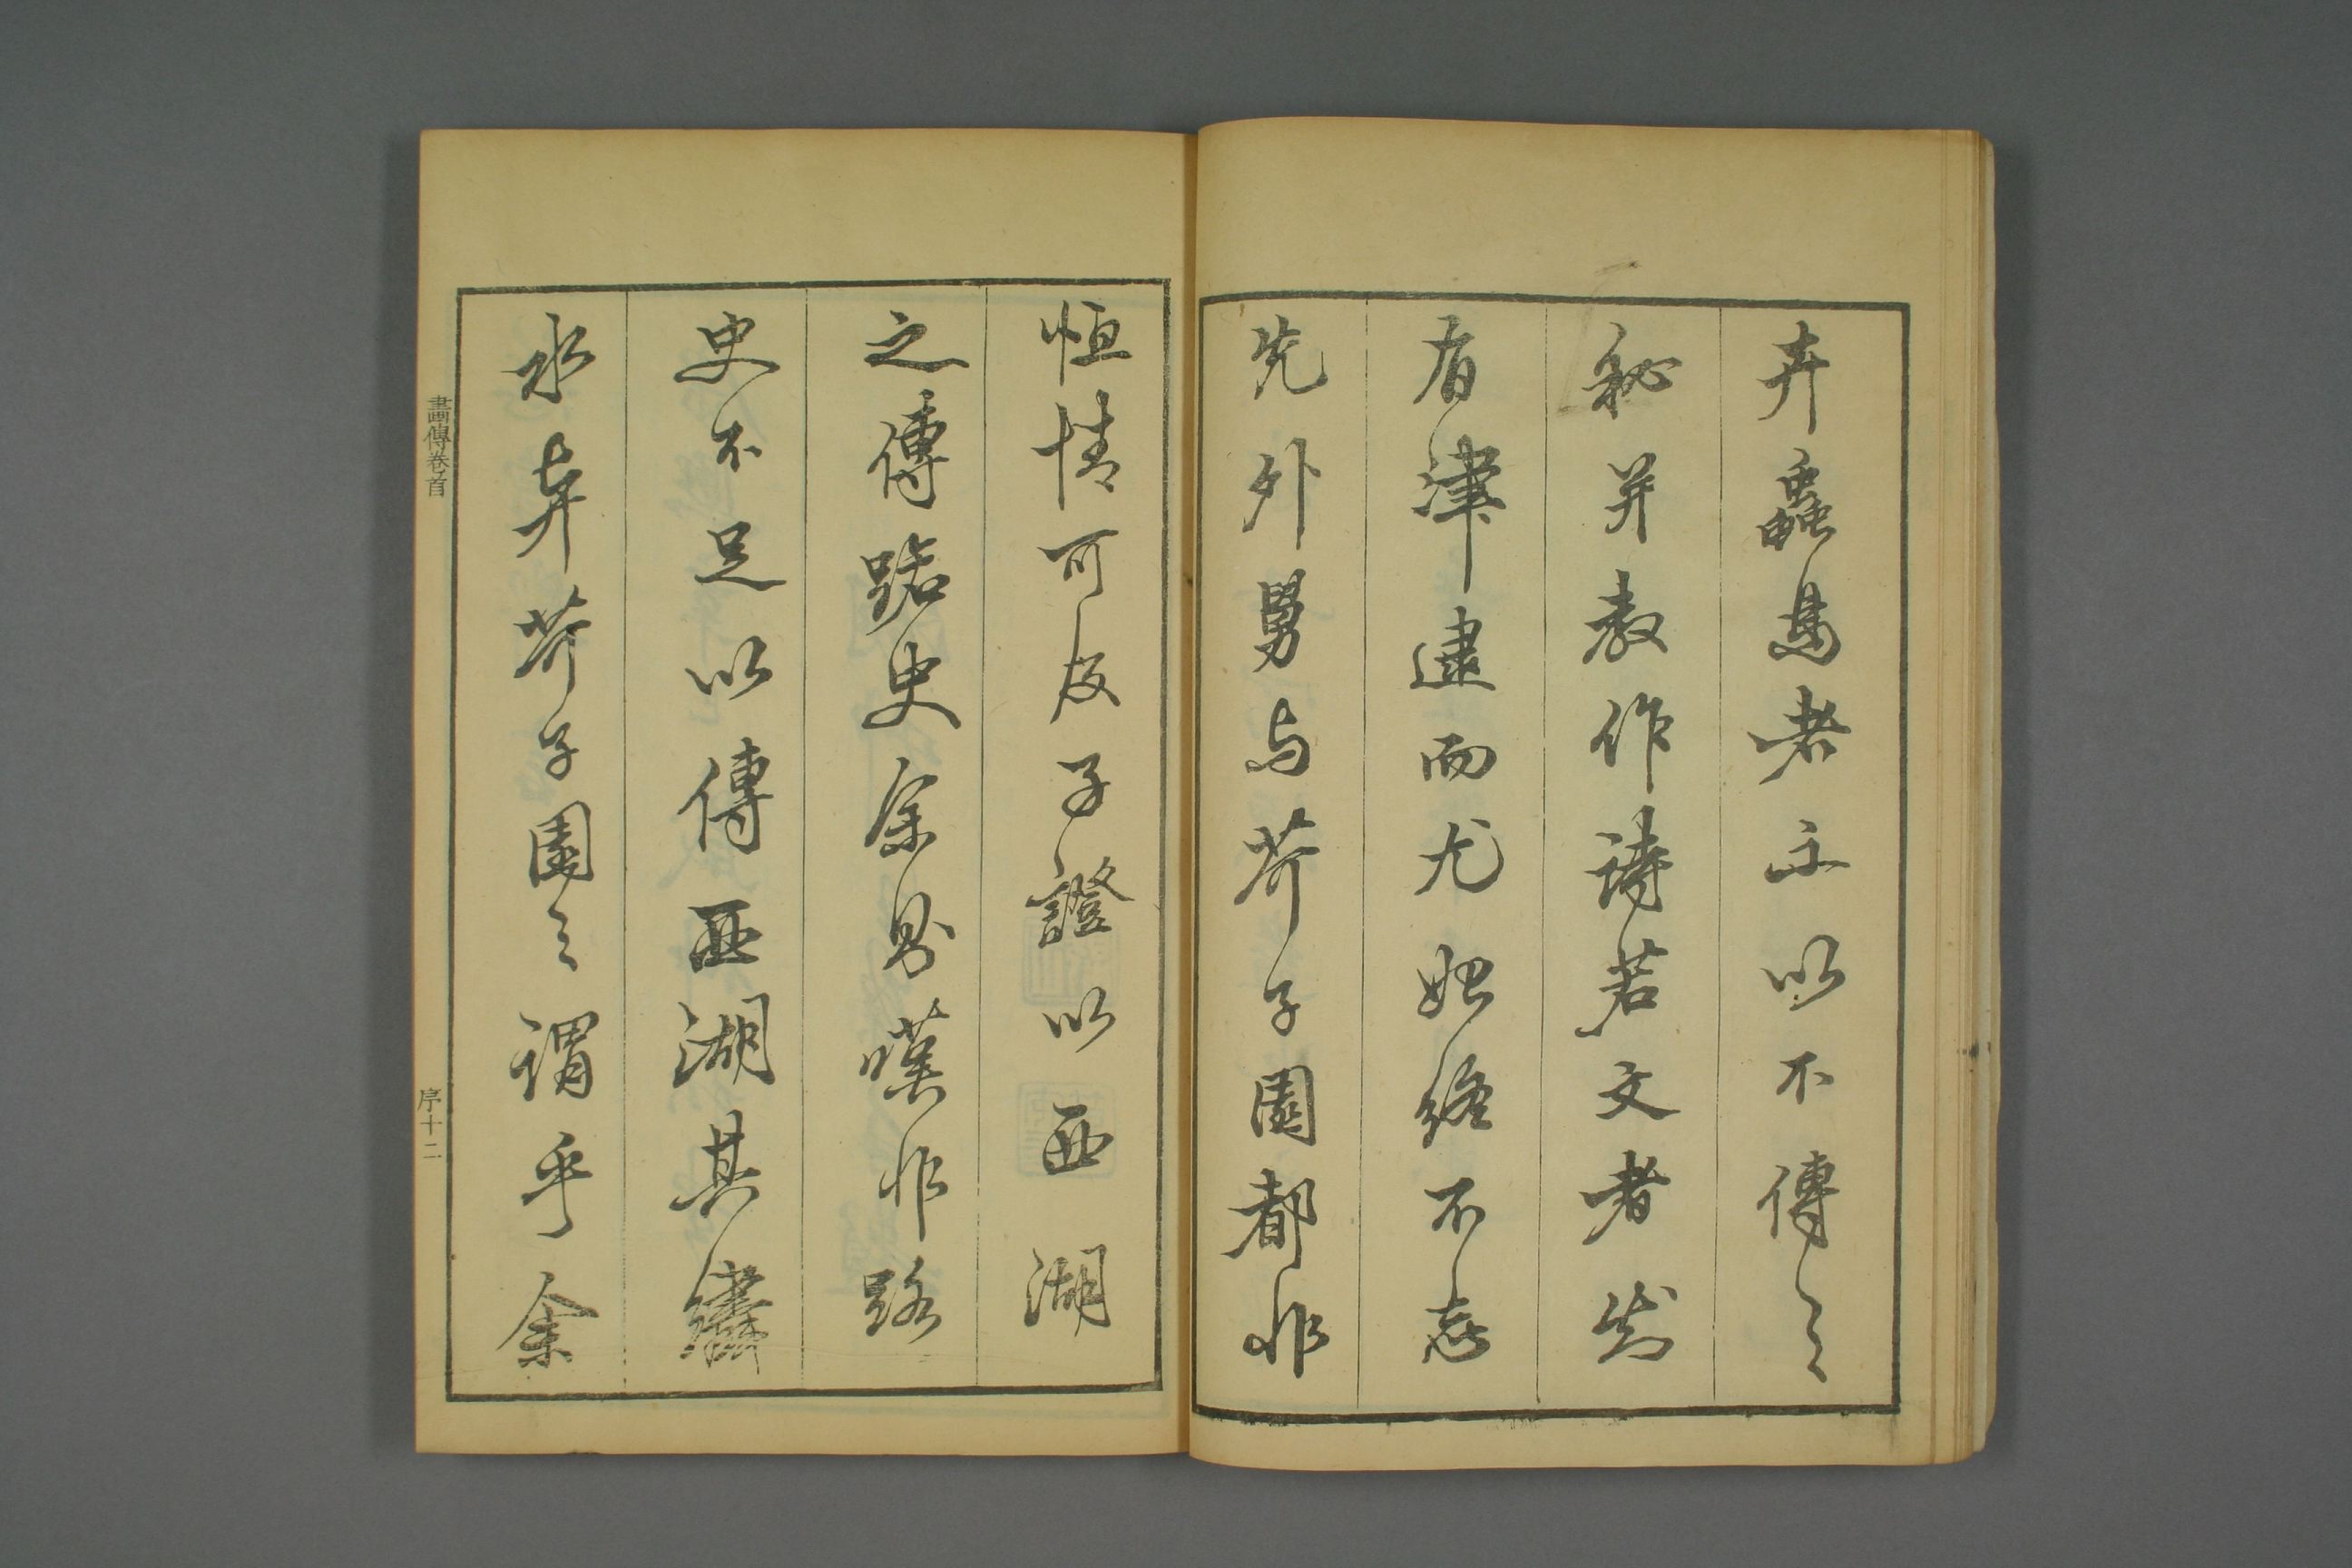 卉蟲鳥者示以不傳之
秘并教作詩若文者
有津逮而尤始終不忘
先外舅与芥子園都非
恒情可及予證以西湖
之傳史嘆非路
史不足以傳西湖其繡
水芥子園之謂乎余
畫傳卷首
序十二